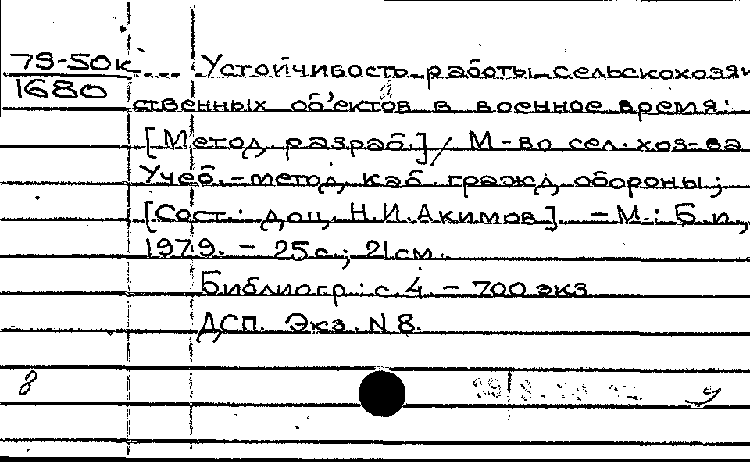 79-50к
1680
Устойчивость работы сельскохозяй
ственных об'ектов в военное время:
[Метод. разраб.] / М-во сел. хоз-ва
Учеб.-метод. каб. гражд. обороны;
[Сост.: доц. Н.И. Акимов]. - М.: Б.и.,
1979. - 25 с.; 21 см.
Библиогр.: с. 4 - 700 экз
ДСП. Экз. N 8.
8